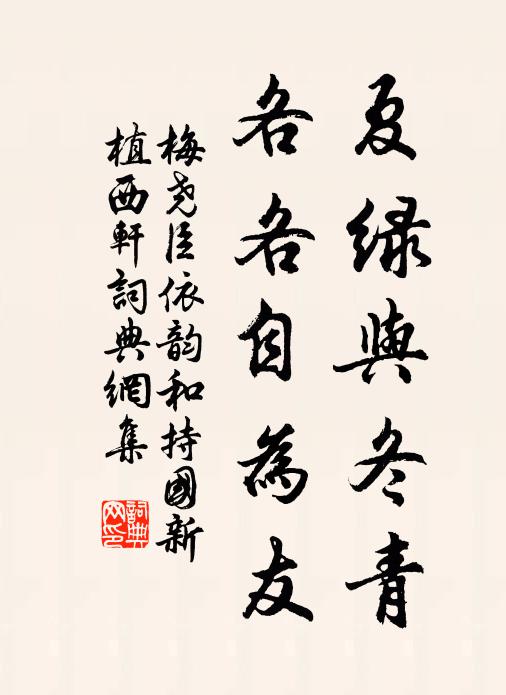 夏緑與冬青
各各自為友
梅堯臣依韵和持國新
植西軒詞典網集
詞典網印